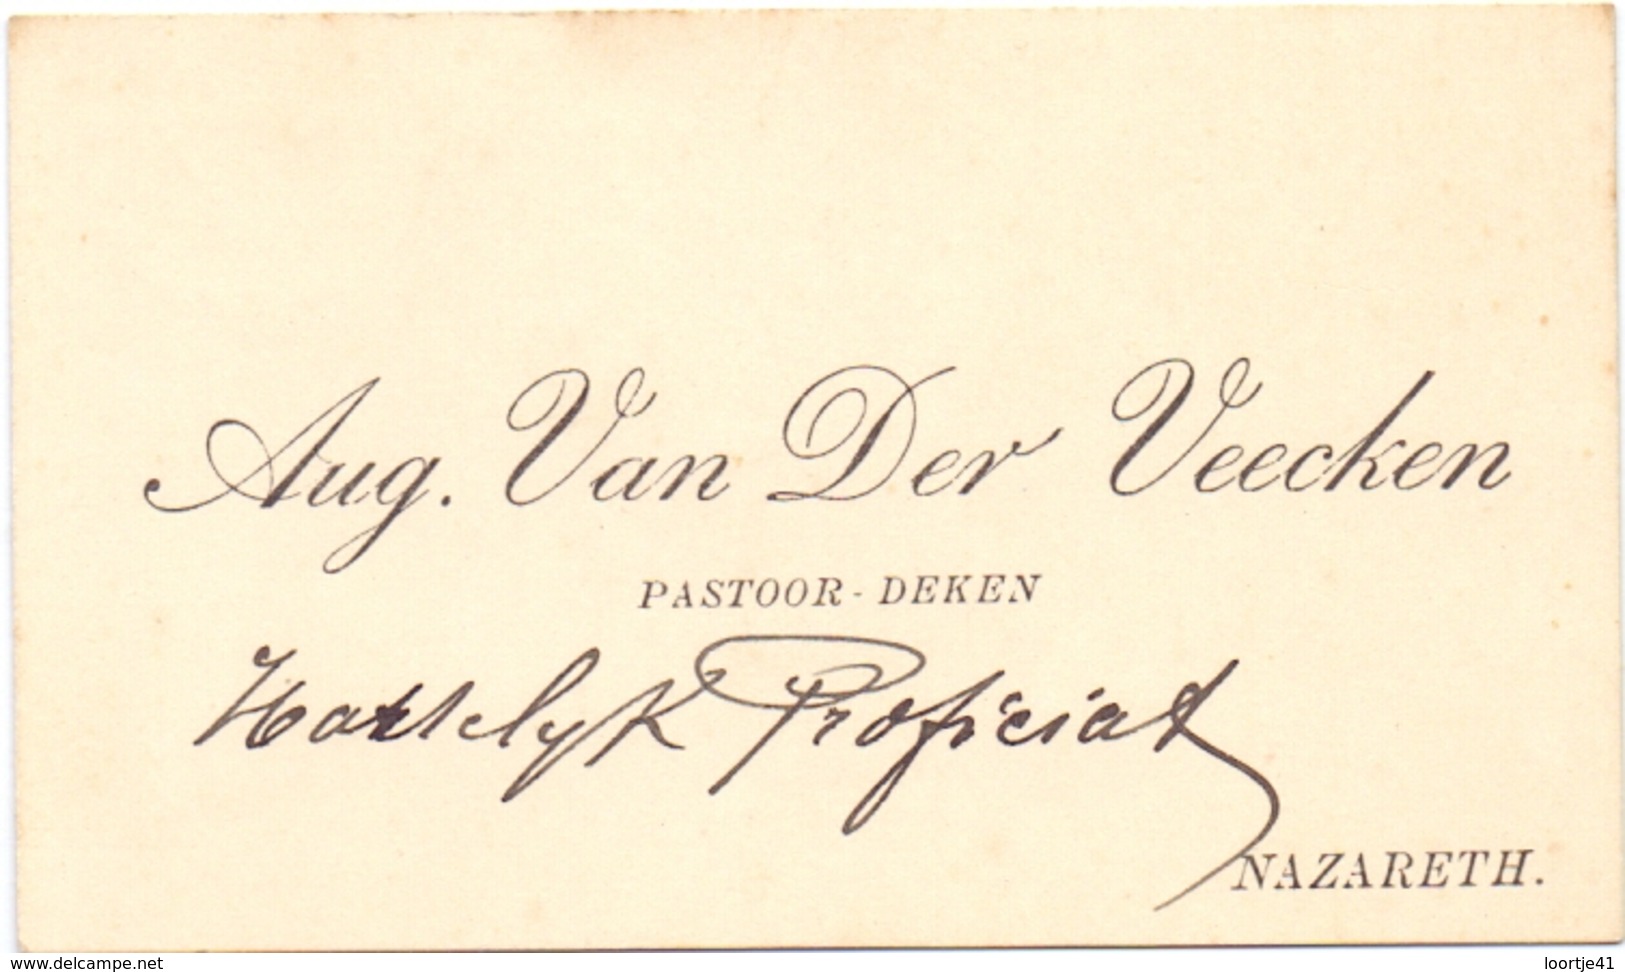 Aug. Van Der Veecken
PASTOOR - DEKEN
Hartelyk Proficiat
NAZARETH.
www.delcampe.net
loortje41